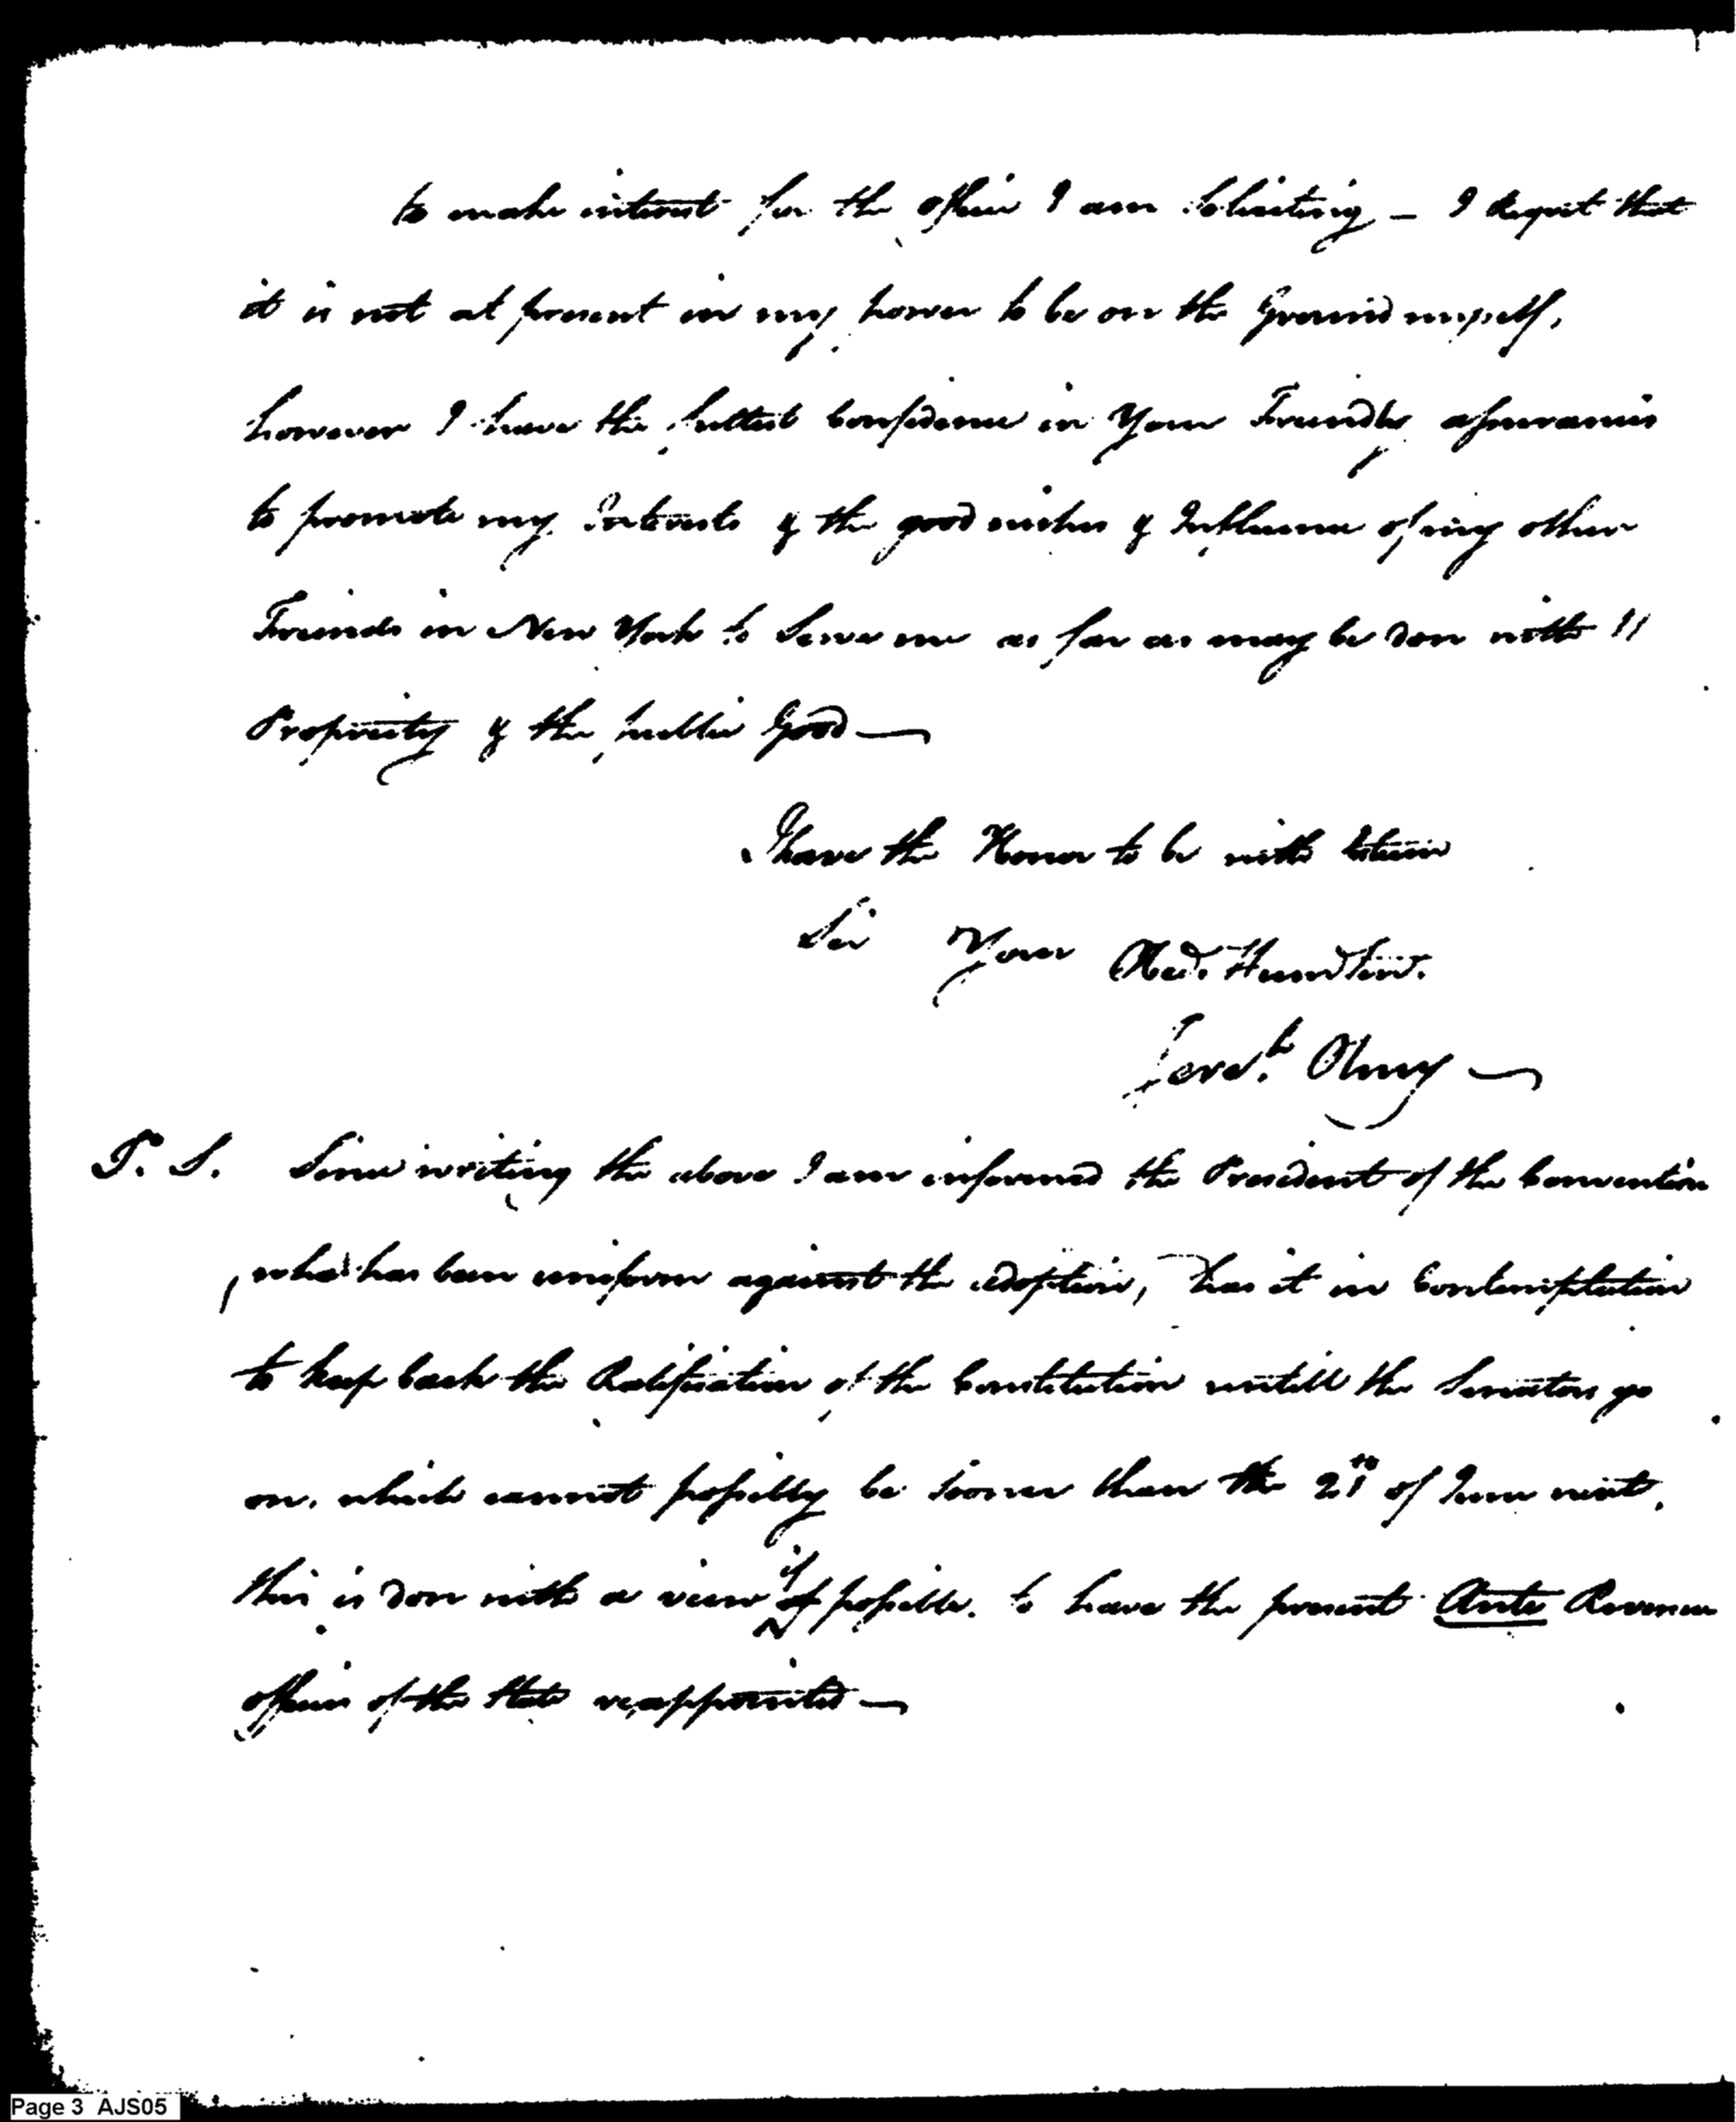 to make interest for the office I am Soliciting – I regret that
it is not at present in my power to be on the Ground myself,
however I have the fullest Confidence in Your Friendly assurances
to promote my Interests & the good wishes & Influence of my other
Friends in New York to Serve me as far as may be don with
Propriety & the public Good —
I have the Honor to be with Esteem
Sir Your Obed. Hum Serv.
Jereh. Olney —
P. S. Since writing the above I am informed the President of the Convention
, who has been uniform against the adoption, has it in Contemplation
to keep back the Ratification of the Constitution untill the Senators go
on, which cannot possibly be sooner than the of June next,
this is don with a view if possible, to have the present Ante Revenue
officers of the State reappointed —
Page 3 AJS05